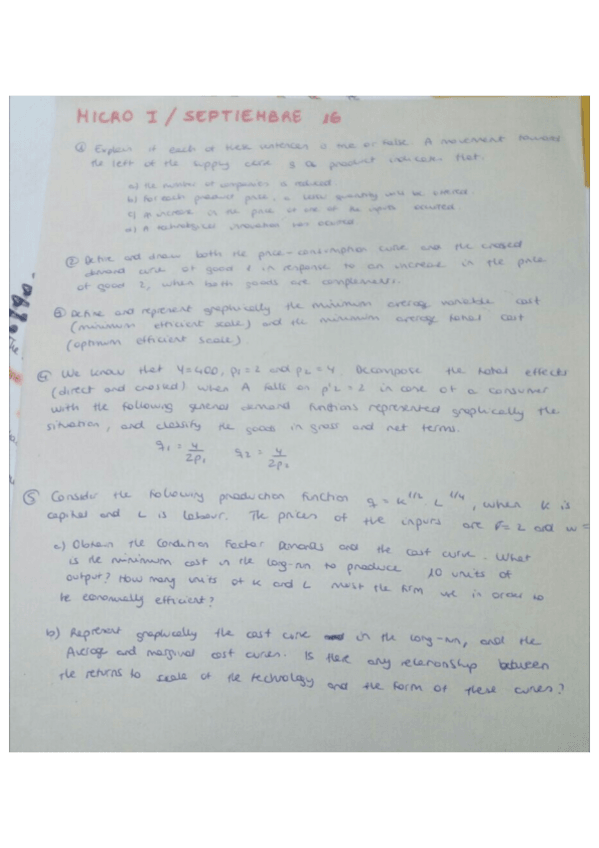 MICRO I / SEPTIEMBRE 16
① Explain if each of these sentences is true or false. A movement toward
the left of the supply curve of a product indicates that:
a) the number of companies is reduced
b) For each product price, a quantity will be offered
c) An increase in the price of one of the inputs occurred
d) A technological innovation has occurred
② Define and draw both the price-consumption curve and the crossed
demand curve of good 1 in response to an increase in the price
of good 2, when both goods are complements.
③ Define and represent graphically the minimum average variable cost
(minimum efficient scale) and the minimum average total cost
(optimum efficient scale)
④ We know that Y=400, p₁=2 and p₂=4. Decompose the total effects
(direct and crossed) when A falls on p'₂=2 in case of a consumer
with the following general demand functions represented graphically the
situation, and classify the goods in gross and net terms.
q₁ = Y/2p₁ q₂ = Y/2p₂
⑤ Consider the following production function q = K^1/2 . L^1/4, when K is
capital and L is labour. The prices of the inputs are r=2 and w=
a) Obtain the Condition Factor Demands and the cost curve. What
is the minimum cost in the long-run to produce 10 units of
output? How many units of K and L must the firm use in order to
be economically efficient?
b) Represent graphically the cost curve in the long-run, and the
Average and marginal cost curves. Is there any relationship between
the returns to scale of the technology and the form of these curves?